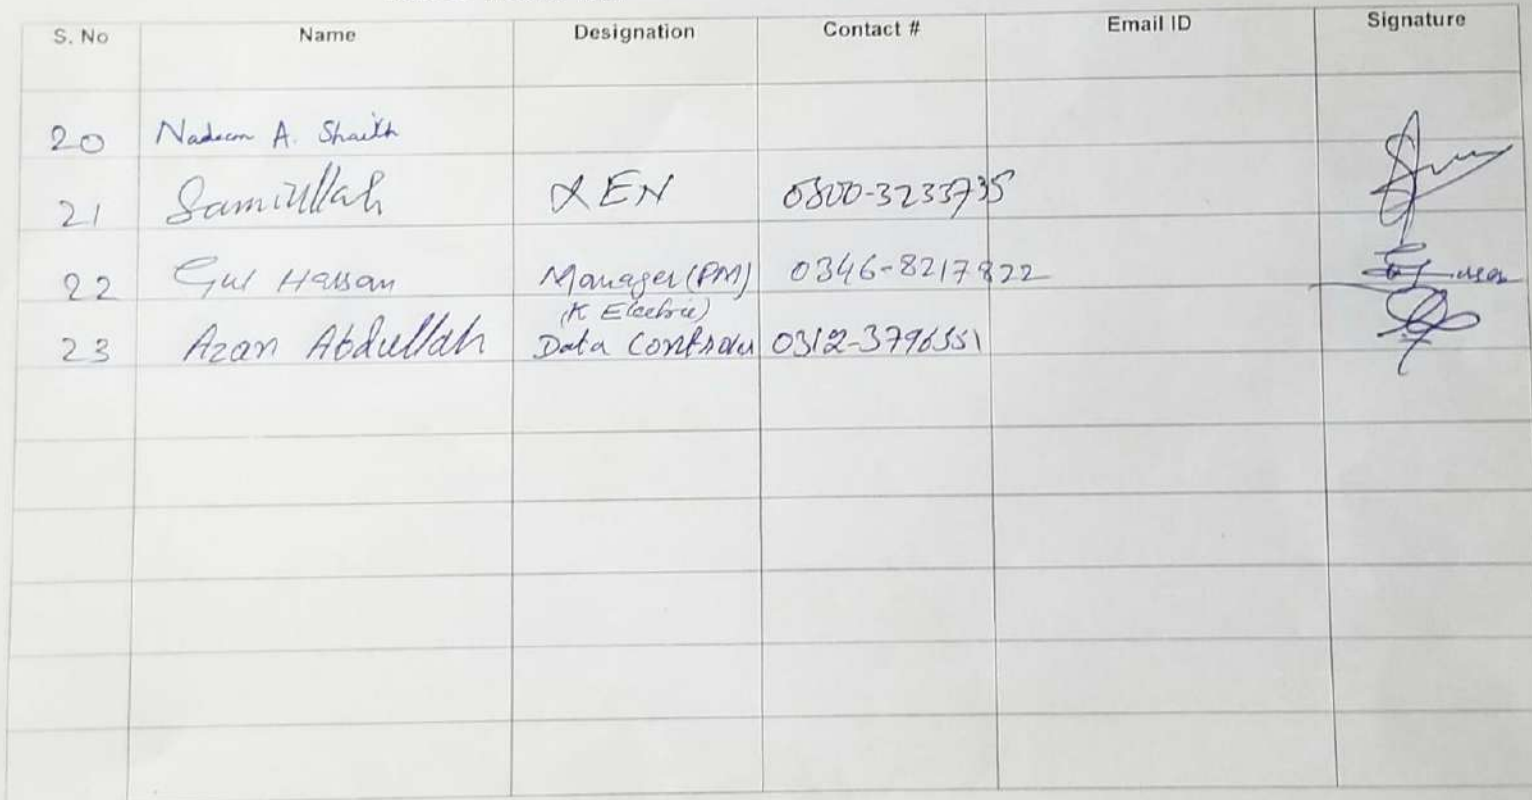 S. No Name Designation Contact # Email ID Signature
20 Nadeem A. Shaikh
21 Samiullah XEN 0300-3233735
22 Gul Hassan Manager (PM) 0346-8217822
(K Electric)
23 Azan Abdullah Data Controler 0312-3796551